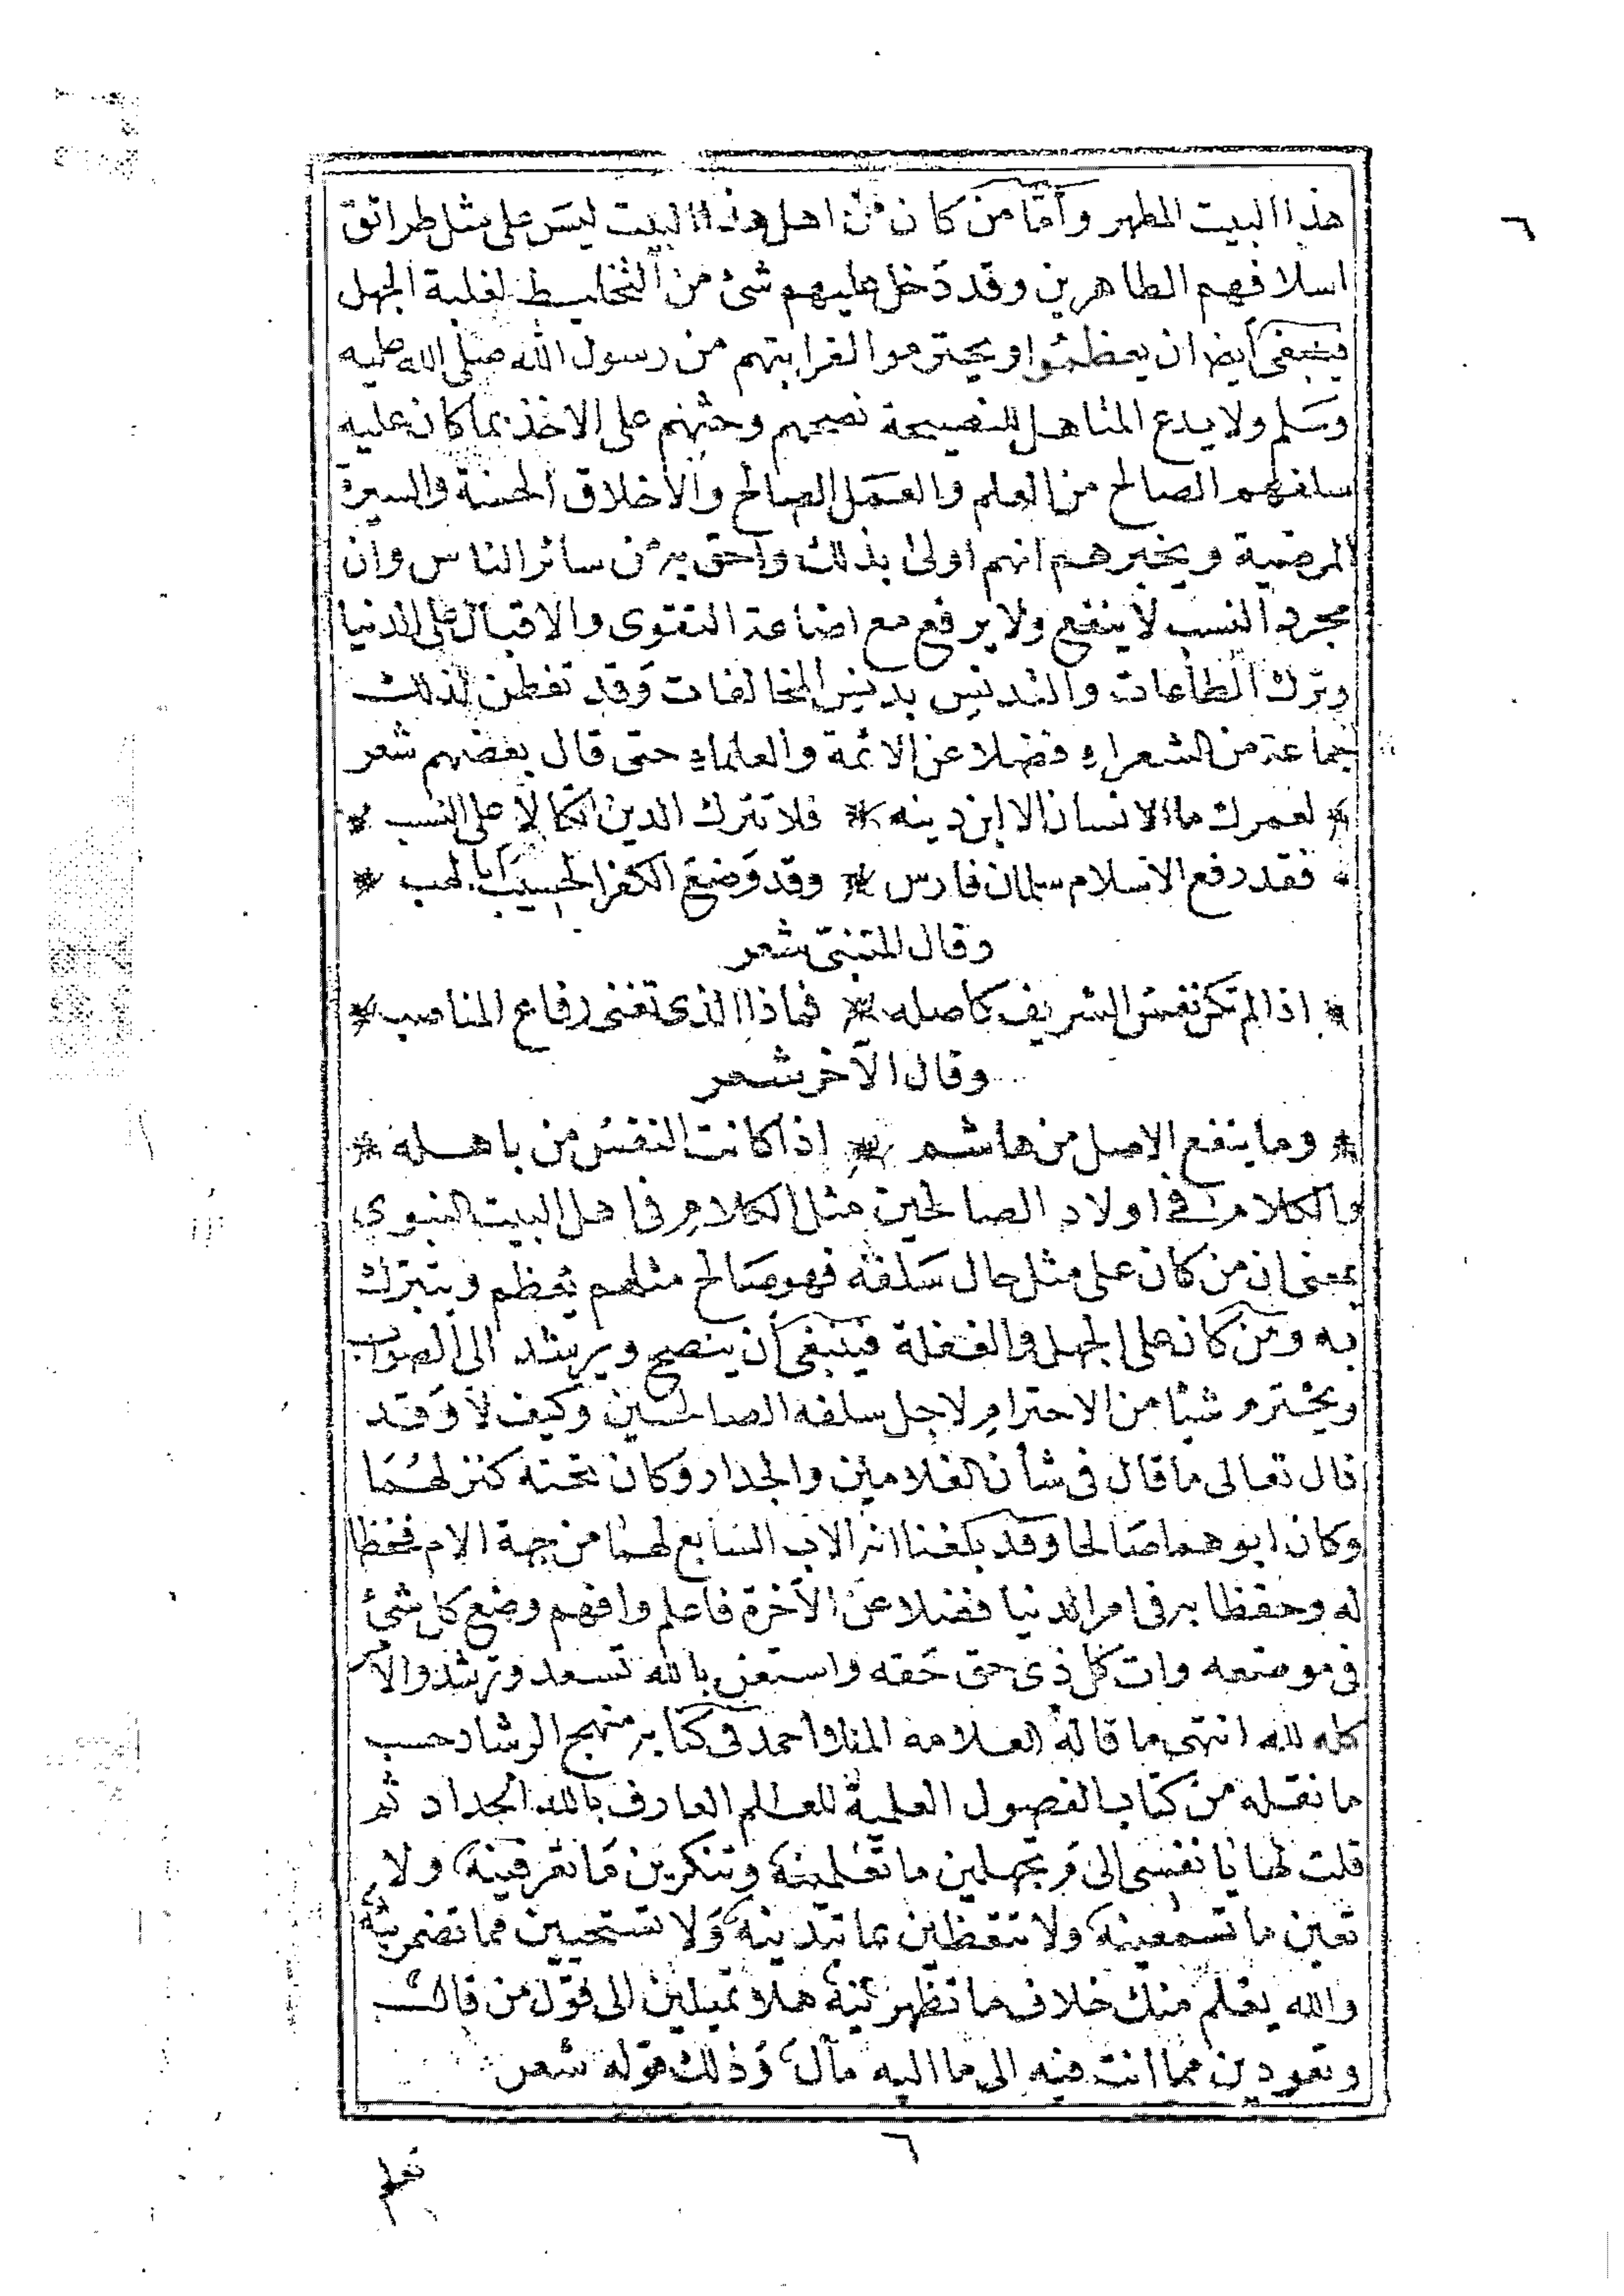 ٦
هذا البيت المطهر وأمّا من كان من اهل هذا البيت ليس على مثل طرائق
اسلافهم الطاهرين وقد دخل عليهم شئ من التخليط لغلبة الجهل
فينبغى أيضا ان يعظموا ويحترموا لقرابتهم من رسول الله صلى الله عليه
وسلم ولا يدع المتاهل للنصيحة نصحهم وحثهم على الاخذ بما كان عليه
سلفهم الصالح من العلم والعمل الصالح والاخلاق الحسنة والسيرة
المرضية ويخبرهم انهم اولى بذلك واحق به من سائر الناس وان
مجرد النسب لا ينفع ولا يرفع مع اضاعة التقوى والاقبال على الدنيا
وترك الطاعات والتدنيس بدنس المخالفات وقد تفطن لذلك
جماعة من الشعراء فضلا عن الائمة والعلماء حتى قال بعضهم شعر
* لعمرك ما الانسان الا ابن دينه * فلا تترك الدين اتكالا على النسب *
* فقد رفع الاسلام سلمان فارس * وقد وضع الكفر الحسيب أبا لهب *
وقال المتنبى شعر
* اذا لم تكن نفس الشريف كاصله * فماذا الذى تغنى رفاع المناصب *
وقال الآخر شعر
* وما ينفع الاصل من هاشم * اذا كانت النفس من باهله *
والكلام فى اولاد الصالحين مثل الكلام فى اهل البيت النبوي
بمعنى ان من كان على مثل حال سلفه فهو صالح مثلهم يعظم ويتبرك
به ومن كان على الجهل والغفلة فينبغى أن ينصح ويرشد الى الصواب
ويحترم شيئا من الاحترام لاجل سلفه الصالحين وكيف لا وقد
قال تعالى ما قال فى شأن الغلامين والجدار وكان تحته كنز لهما
وكان ابوهما صالحا وقد بلغنا انه الاب السابع لهما من جهة الام فحفظا
له وحفظا به فى امر الدنيا فضلا عن الآخرة فاعلم وافهم وضع كل شئ
فى موضعه وات كل ذى حق حقه واستعن بالله تسعد وترشد والامر
كله لله انتهى ما قاله العلامة المنلا احمد فى كتابه منهج الرشاد حسب
ما نقله من كتاب الفصول العلمية للعالم العارف بالله الحداد ثم
قلت لها يا نفسى الى م تجهلين ما تعلمينه، وتنكرين ما تعرفينه، ولا
تعين ما تسمعينه، ولا تتعظين بما تبدينه، ولا تستحيين مما تضمرينه،
والله يعلم منك خلاف ما تظهرينه، هلا تميلين الى قول من قال،
وتعودين مما انت فيه الى ما اليه مآل، وذلك قوله شعر
٦
تعلم